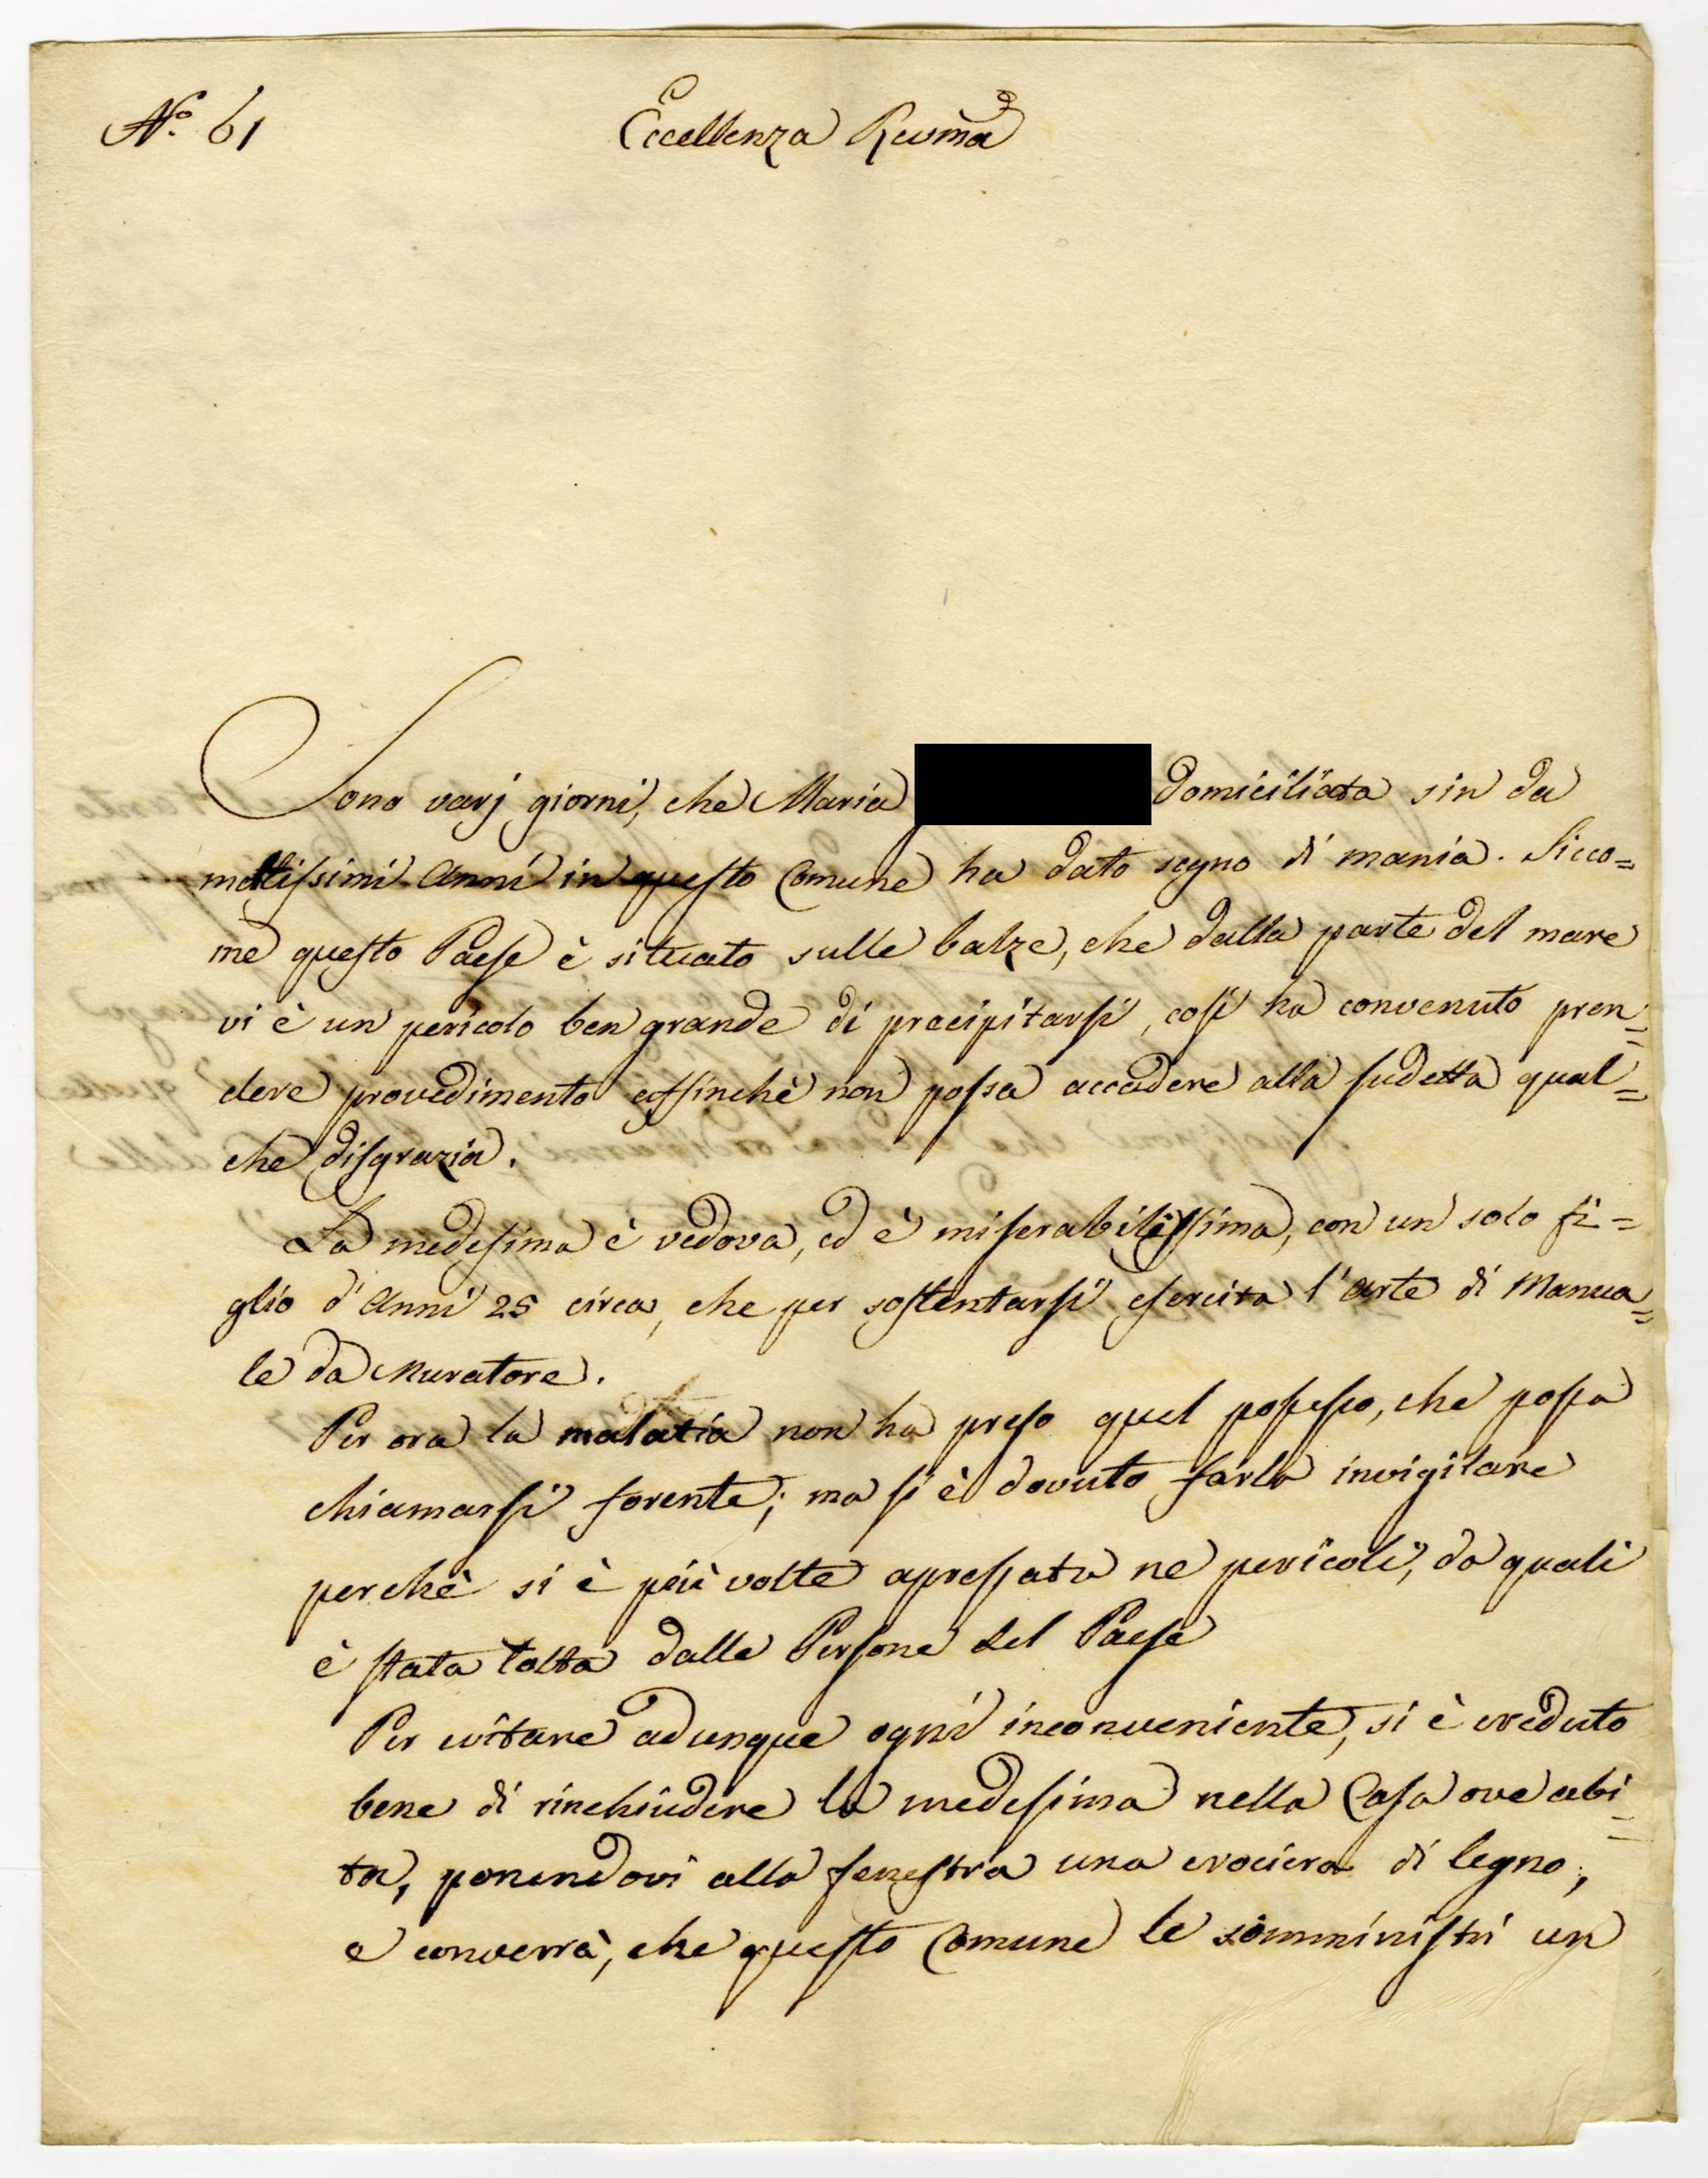 N.° 61
Eccellenza Revma
Sono varj giorni, che Maria domiciliata sin da
moltissimi Anni in questo Comune ha dato segno di mania. Sicco=
me questo Paese è situato sulle balze, che dalla parte del mare
vi è un pericolo ben grande di precipitarsi, così ha convenuto pren=
dere provedimento affinchè non possa accadere alla sudetta qual=
che disgrazia.
La medesima è vedova, ed è miserabilissima, con un solo fi=
glio d'Anni 25 circa, che per sostentarsi esercita l'arte di Manua=
le da Muratore.
Per ora la malatia non ha preso quel possesso, che possa
chiamarsi forente; ma si è dovuto farla invigilare
perchè si è più volte apressata ne pericoli, da quali
è stata tolta dalle Persone del Paese
Per evitare adunque ogni inconveniente, si è creduto
bene di rinchiudere la medesima nella Casa ove abi=
ta, ponendovi alla fenestra una crociera di legno,
e converrà, che questo Comune le somministri un